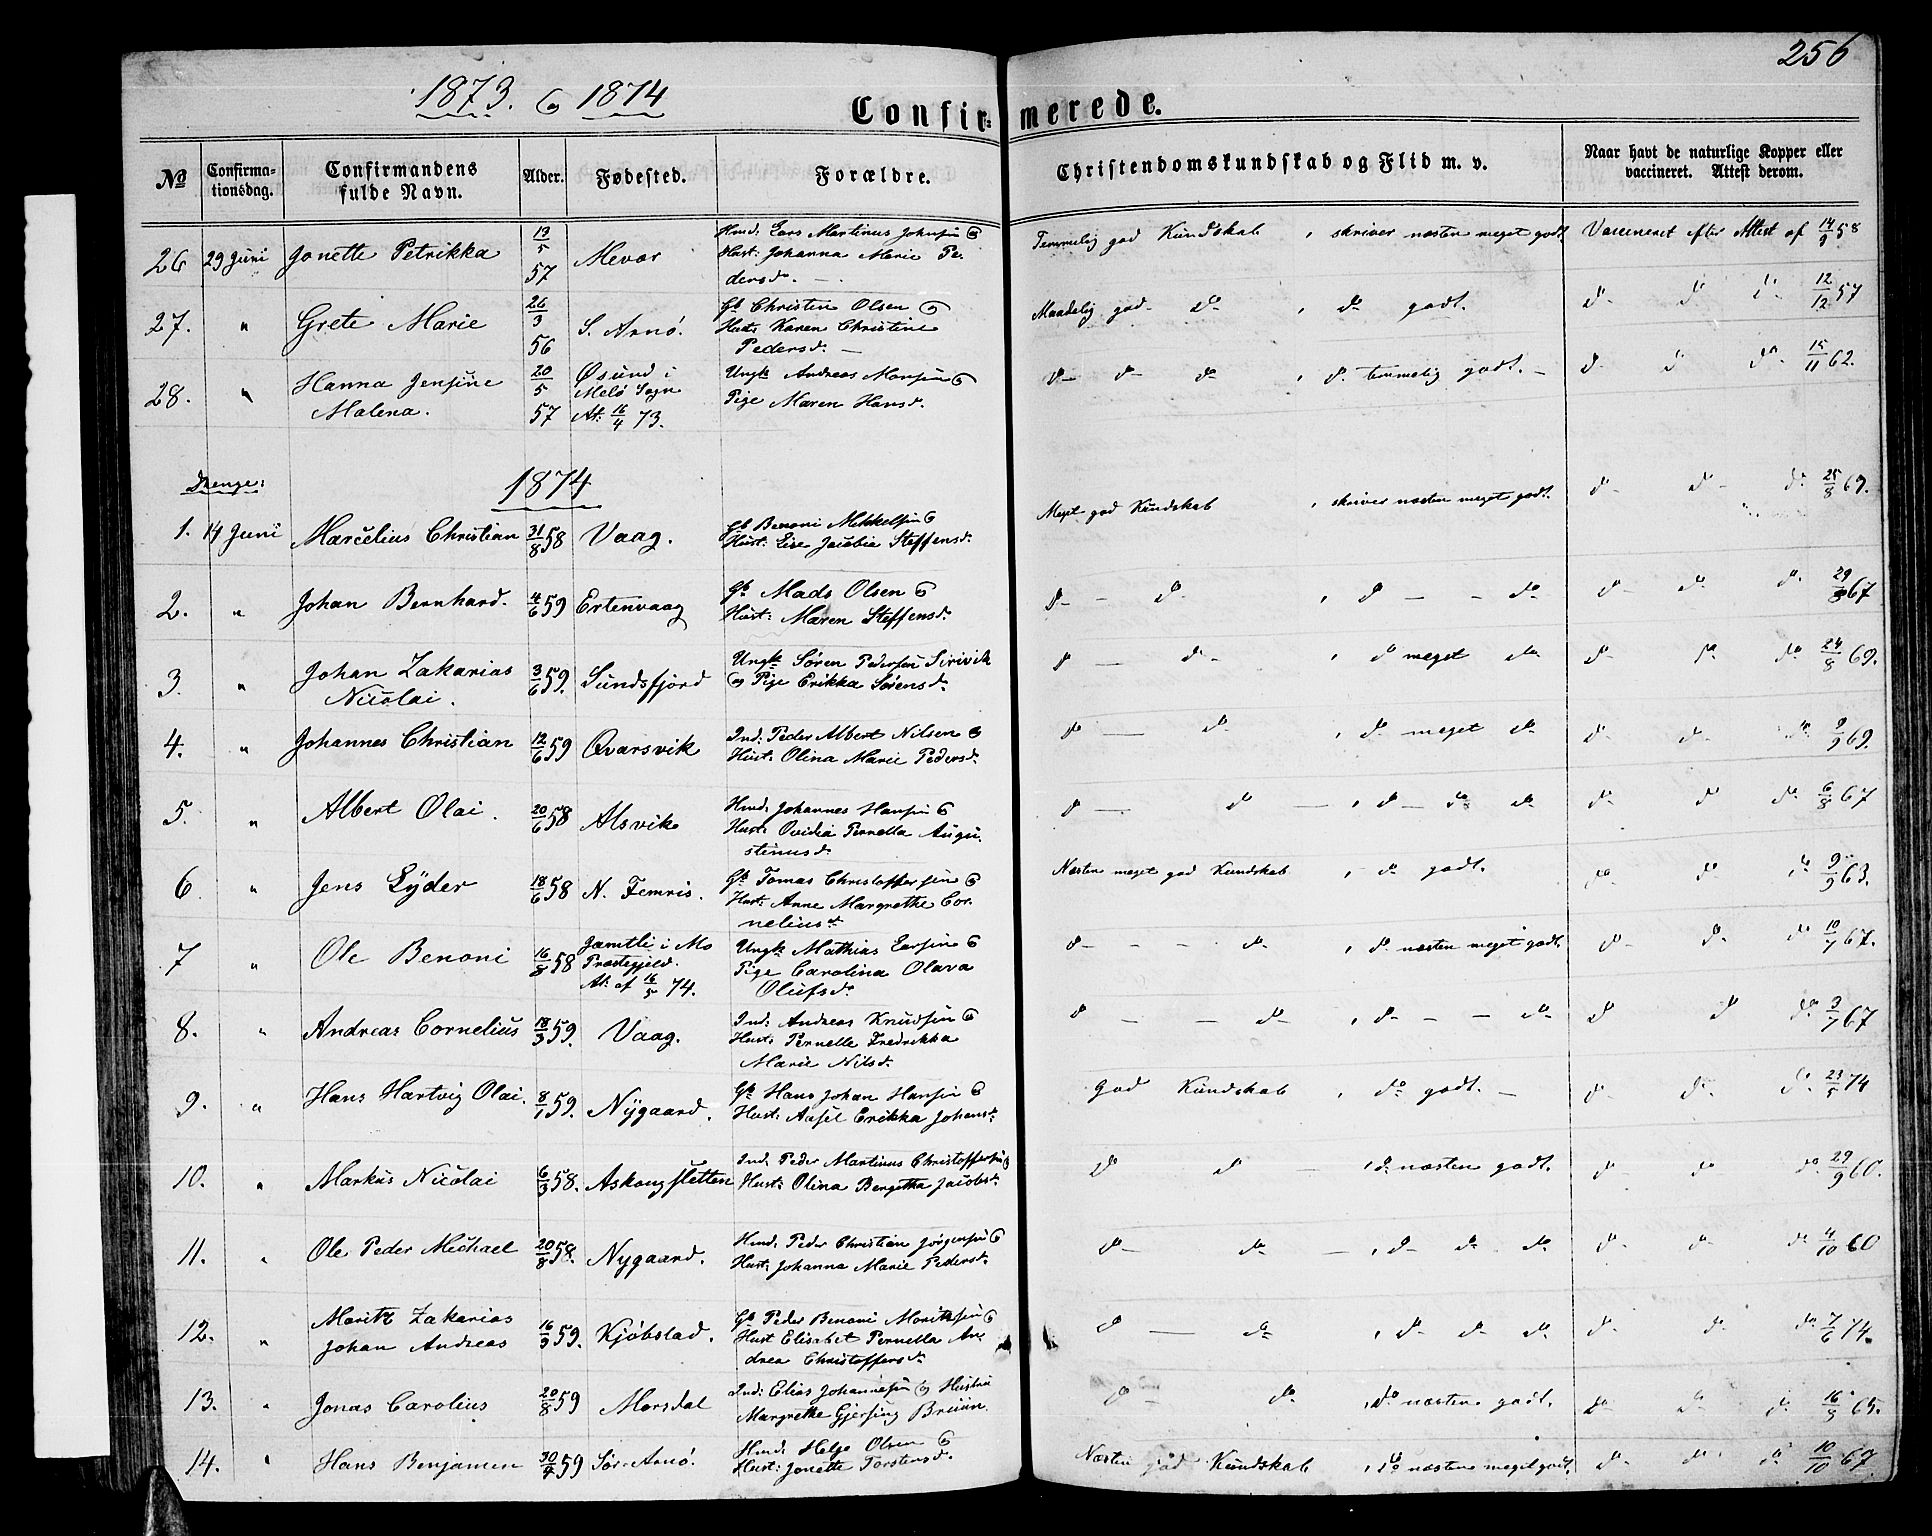 256
1873. og 1874
Confirmerede.
No
Confirmationsdag.
Confirmandens fulde Navn.
Alder.
Fødested.
Forældre.
Christendomskundskab og Flid m. v.
Naar havt de naturlige Kopper eller vaccineret. Attest derom.
26 29 Juni Jonette Petrikka 13/5 57 Mevær Hmd: Lars Martinus Johnsen og Hust: Johanna Marie Pedersd. Temmelig god Kundskab, skriver næsten meget godt. Vaccineret efter Attest af 14/9 58
27. " Grete Marie 26/3 56 S. Arnø. Gb Christen Olsen og Hust: Karen Christine Pedersd. Maadelig god do, do godt. do do do 12/12 57
28. " Hanna Jensine Malena. 20/5 57 Øsund i Melø Sogn At: 16/4 73. Ungk Andreas Monsen og Pige Maren Hansd. do do do, do temmelig godt. do do do 15/11 62.
Drenge:
1874
1. 14 Juni Marcelius Christian 31/8 58 Vaag. Gb Benoni Mikkelsen og Hust: Lise Jacobia Steffensd. Meget god Kundskab, skriver næsten meget godt. do do do 25/8 69.
2. " Johan Bernhard. 4/6 59 Ertenvaag Gb Mads Olsen og Hust: Maren Steffensd. do do, do do do do do 29/8 67
3 " Johan Zakarias Nicolai. 3/6 59. Sundsfjord Ungk Søren Pedersen Sirivik og Pige Erikka Sørensd. do do, do meget do do do do 24/8 69.
4. " Johannes Christian 12/6 59 Qvarsvik Ind: Peder Albert Nilsen og Hust: Olina Marie Pedersd. do do, do meget do do do do 9/9 69.
5. " Albert Olai. 20/6 58 Alsvik Hmd: Johannes Hansen og Hust: Ovidia Pernella Augustinusd. do do, do do do do do do 6/8 67
6 " Jens Lyder 18/6 58 N. Femris. Gb Tomas Christoffersen og Hust: Anne Margrethe Corneliusd. Næsten meget god Kundskab, do godt. do do do 9/9 63.
7 " Ole Benoni 16/8 58 Jamtli i Mo Præstegjeld. At: af 16/5 74. Ungk Mathias Larsen og Pige Carolina Olava Olufsd. do do, do næsten meget godt. do do do 10/7 67.
8. " Andreas Cornelius 18/3 59. Vaag. Ind: Andreas Knudsen og Hust: Pernelle Fredrikka Marie Nilsd. do do, do do do do do 3/7 67
9. " Hans Hartvig Olai. 8/1 59. Nygaard. Gb Hans Johan Hansen og Hust: Aasel Erikka Johansd. God Kundskab, do godt. do do do 23/5 74
10. " Markus Nicolai 6/3 58. Askougsletten Ind: Peder Martinus Christoffersen og Hust: Olina Bergetha Jacobsd. do do, do næsten godt. do do do 29/9 60.
11. " Ole Peder Michael 20/8 58. Nygaard. Hmd. Peder Christian Jørgensen og Hust: Johanna Marie Pedersd. do do, do do do do do do 4/10 60
12. " Moritz Zakarias Johan Andreas 16/3 59. Kjøbstad. Gb Peder Benoni Moritzsen og Hust Elisabet Pernella Andrea Christoffersd. do do, do do do do do do 7/6 74.
13. " Jonas Carolius 20/8 59 Morsdal Ind: Elias Johannesen og Hustru Margrethe Gjersing Bruun. do do, do næsten godt. do do do 16/9 65.
14. " Hans Benjamen 30/4 59 Sør-Arnø. Hmd. Helge Olsen og Hust: Jonette Torstensd. Næsten god Kundskab, do næsten meget godt. do do do 10/10 67